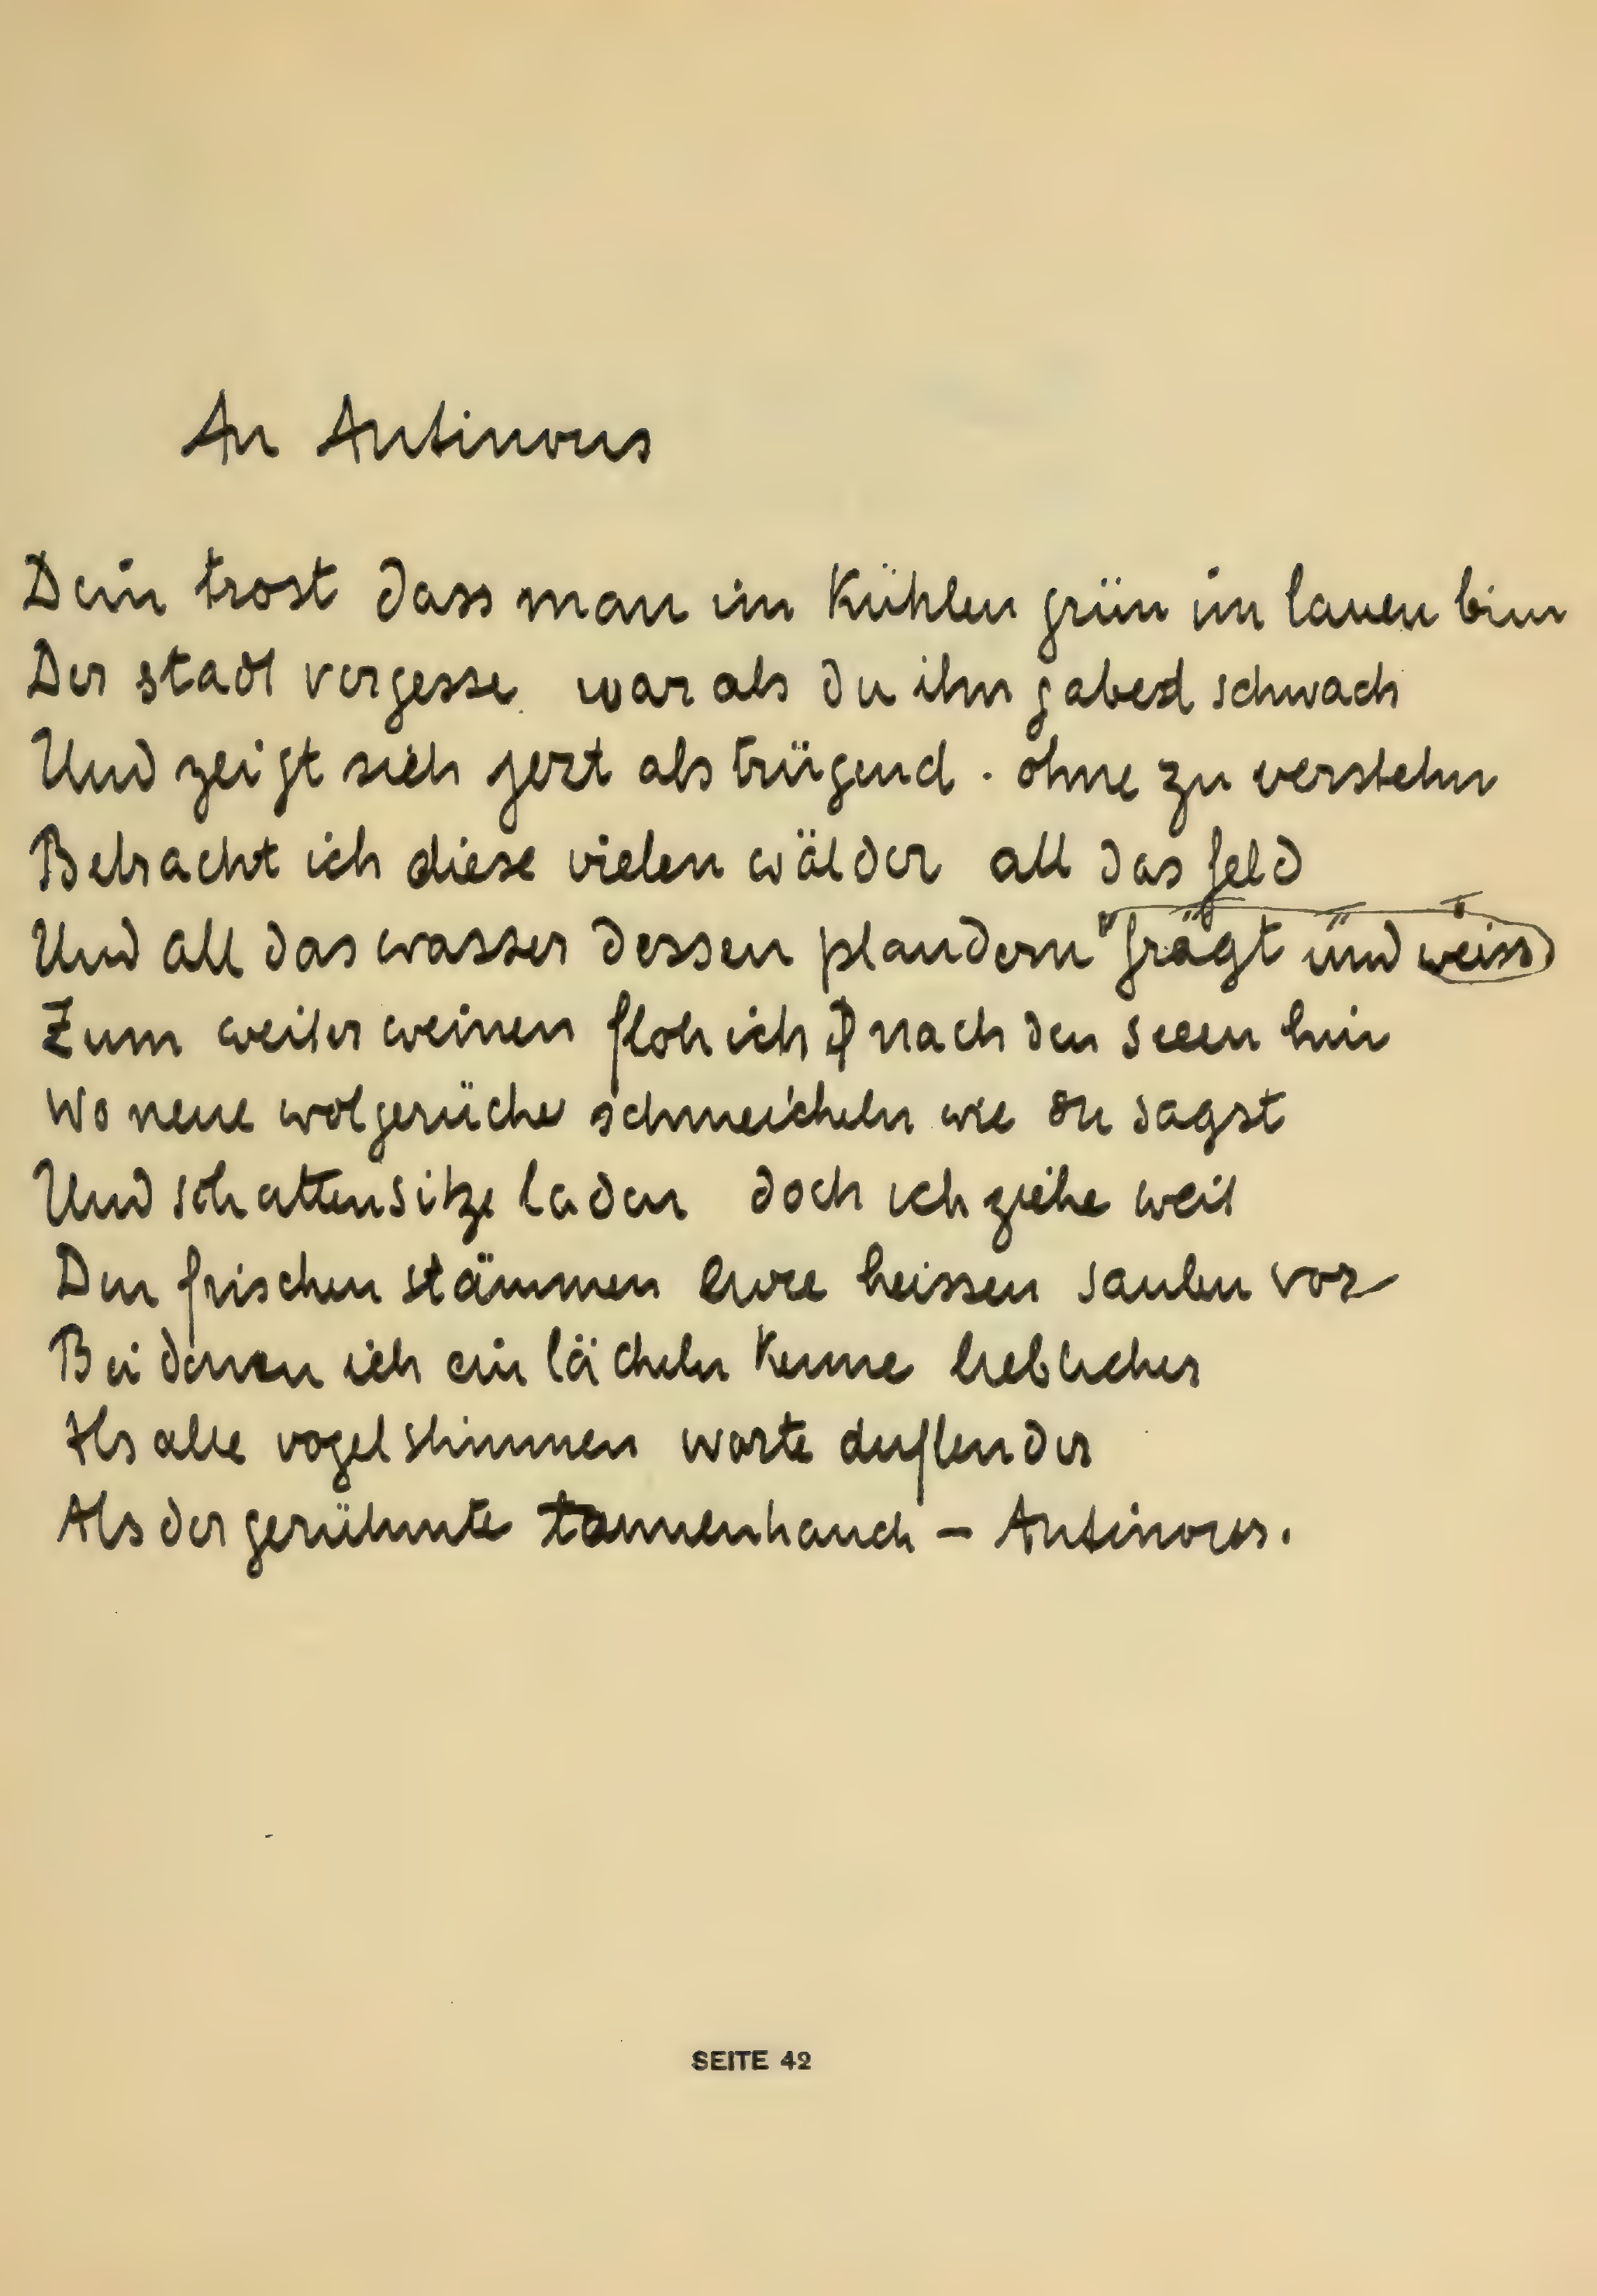 An Antinous
Dein trost dass man im kühlen grün im lauen
Der stadt vergesse war als du ihn gabest schwach
Und zeigt sich jezt als trügend · ohne zu verstehn
Betracht ich diese vielen wälder all das feld
Und all das wasser dessen plaudern frägt und weiss
Zum weiter weinen floh ich nach den seeen hin
Wo neue wolgerüche schmeicheln wie du sagst
Und schattensitze laden doch ich ziehe weit
Den frischen stämmen eure heissen säulen vor
Bei denen ich ein lächeln kenne lieblicher
Als alle vogelstimmen worte duftender
Als der gerühmte tannenhauch – Antinous.
SEITE 42